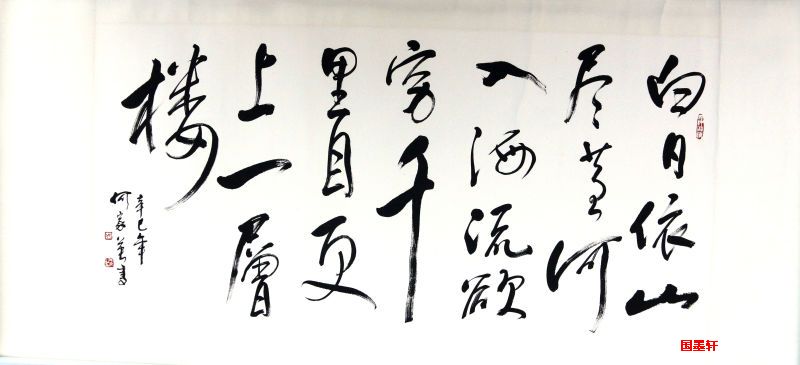 白日依山
尽黄河
入海流欲
穷千
里目更
上一層
楼
辛巳年
何家英书
国墨轩